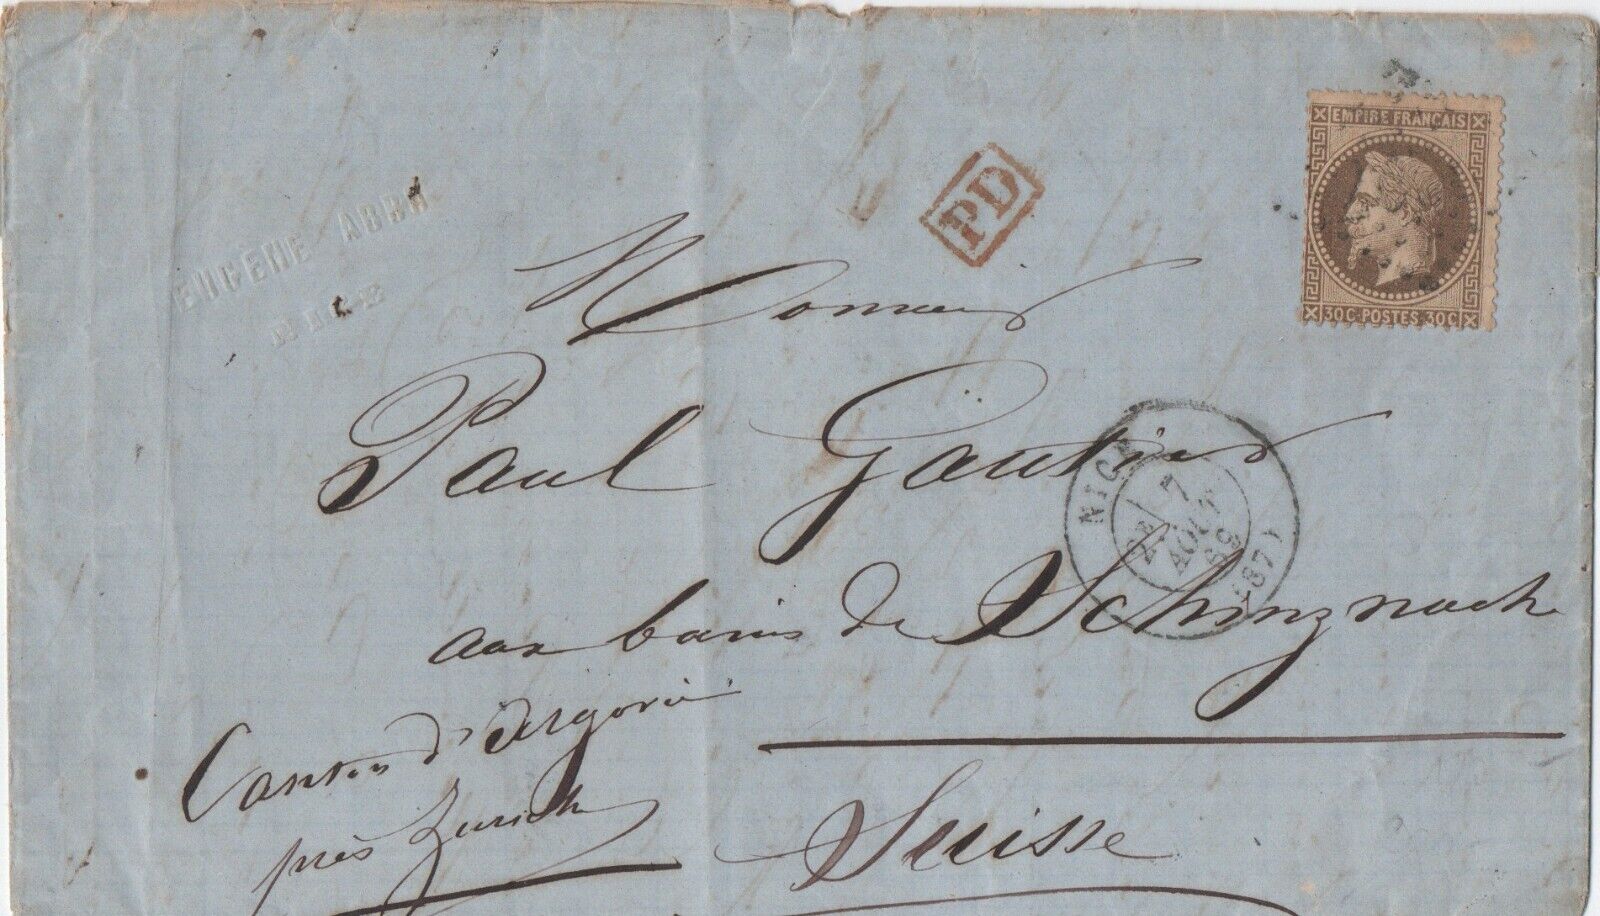 EMPIRE FRANÇAIS
30C·POSTES·30C
PD
EUGÈNE ABBA
NICE
Monsieur
Paul Gautier
NICE
2E
7
AOUT
69
(87)
aux bains de Schinznach
Canton d'Argovie
près Zurich
Suisse